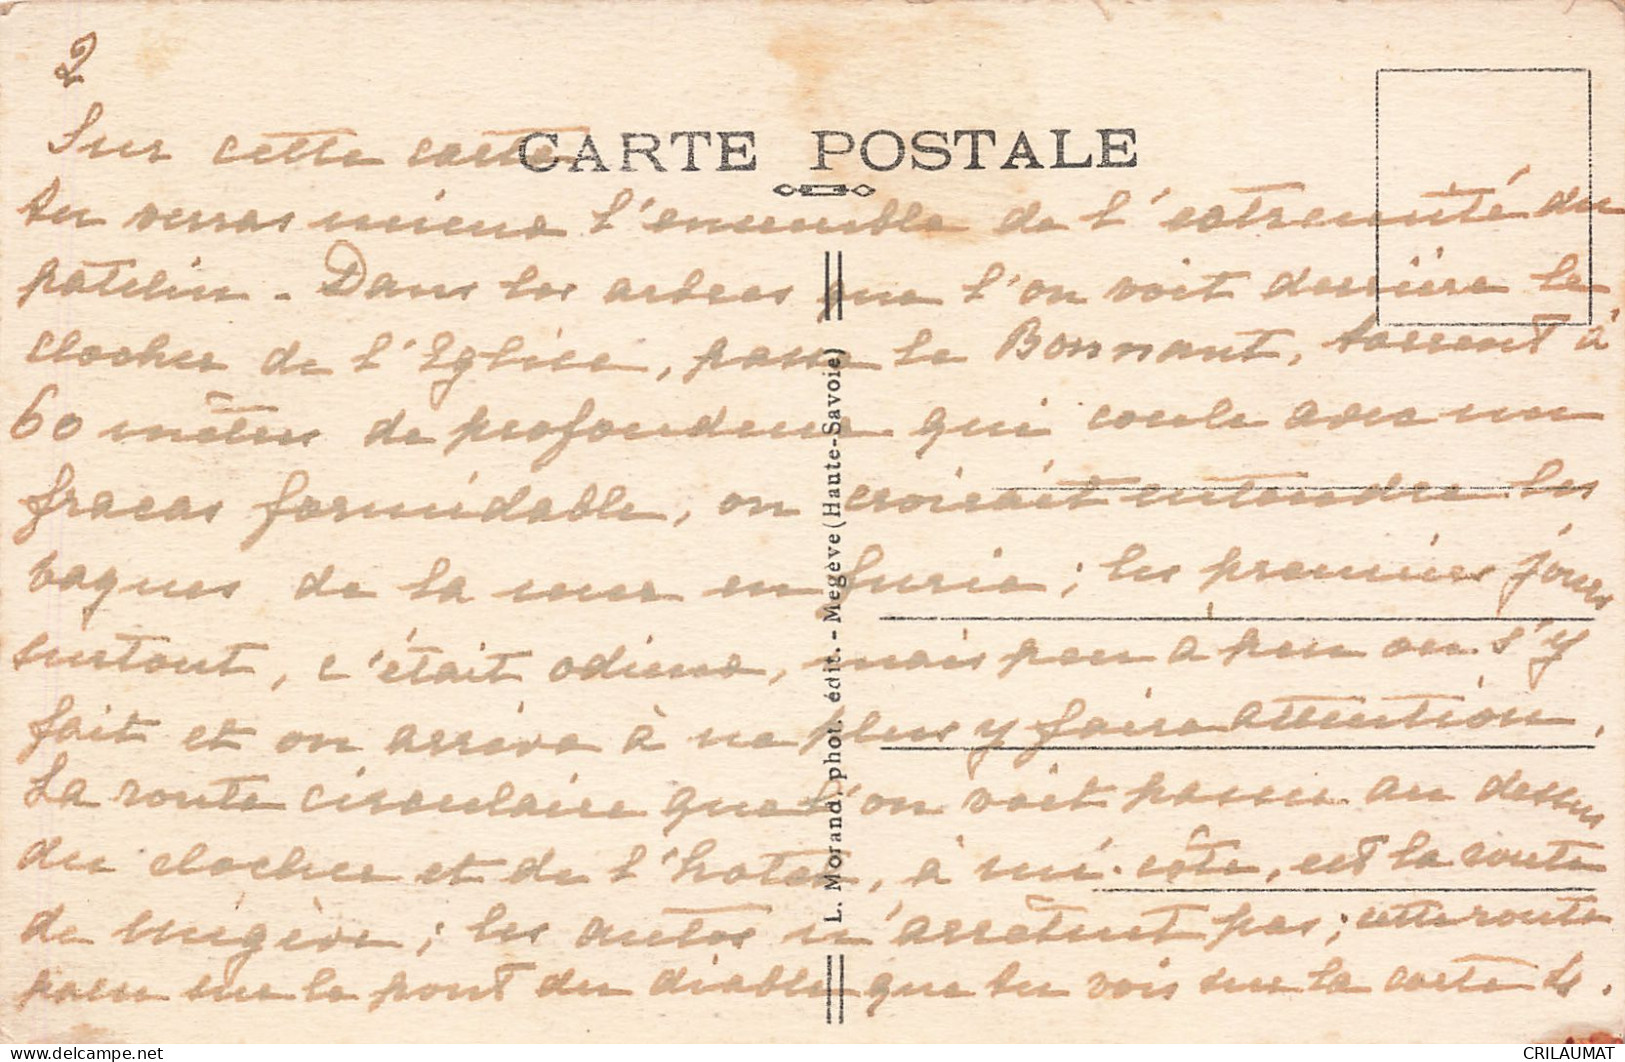 2
CARTE POSTALE
Sur cette carte
tu verras mieux l'ensemble de l'extremité du
patelin - Dans les arbres que l'on voit derrière le
clocher de l'Eglise, passe le Bonnant, torrent à
60 mètres de profondeur qui coule avec un
fracas formidable, on croirait entendre les
vagues de la mer en furie; les premiers jours
surtout, c'était odieux, mais peu à peu on s'y
fait et on arrive à ne plus y faire attention.
La route circulaire que l'on voit passer au dessus
du clocher et de l'hotel, à mi-côte, est la route
de Mégève; les autos n'arrêtent pas; cette route
passe sur le pont du diable que tu vois sur la carte
L. Morand, phot. édit. - Megève (Haute-Savoie)
delcampe.net
CRILAUMAT